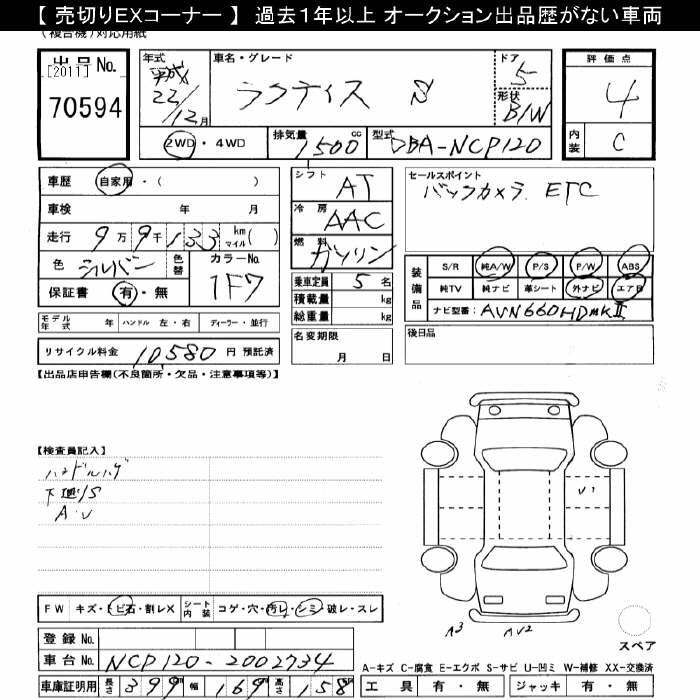 【 売切りEXコーナー 】 過去１年以上 オークション出品歴がない車両
(複合機)対応用紙
出品 No.
[2011]
70594
年式
平成
22/12月
車名・グレード
ラクティス S
ドア
5
形状
B/W
評価点
4
内装
C
2WD ・ 4WD
排気量
1500 cc
型式
DBA-NCP120
車歴 自家用・( )
車検 年 月
走行 9万9千133 km マイル ( )
色 シルバー
色替
カラーNo.
1F7
保証書 有・無
シフト
AT
冷房
AAC
燃料
ガソリン
乗車定員 5 名
積載量 kg
総重量 kg
名変期限
月 日
セールスポイント
バックカメラ ETC
装備品
S/R 純A/W P/S P/W ABS
純TV 純ナビ 革シート 外ナビ エアB
ナビ型番: AVN660HDmkII
後日品
モデル年式 年 ハンドル 左・右 ディーラー・並行
リサイクル料金 10580 円 預託済
【出品店申告欄(不良箇所・欠品・注意事項等)】
【検査員記入】
ハンドルハゲ
下廻/S
A・U
U1
FW キズ・トビ石・割レX シート内装 コゲ・穴・汚レ・シミ・破レ・スレ
A3
AU2
スペア
登録 No.
車台 No. NCP120-2002734
A-キズ C-腐食 E-エクボ S-サビ U-凹ミ W-補修 XX-交換済
車庫証明用 長さ 399 幅 169 高さ 158
工具 有・無 ジャッキ 有・無